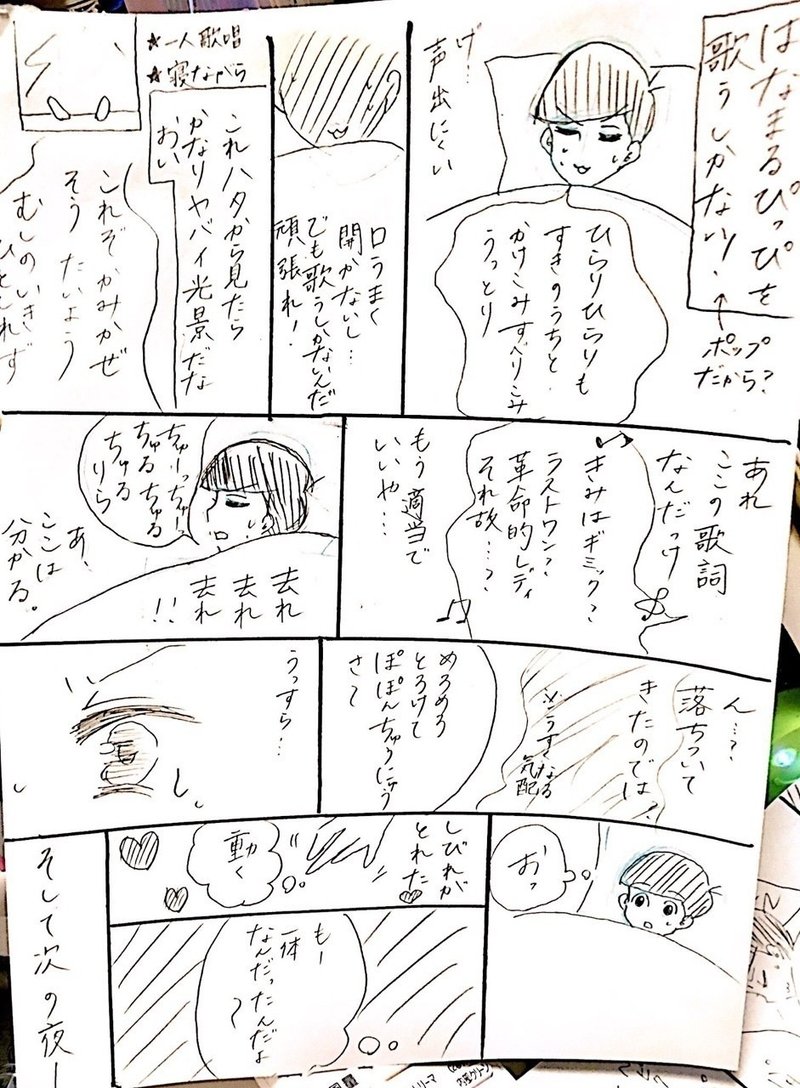 はなまるぴっぴを
歌うしかない！
ポップ
だから？
げ…
声出にくい
ひらりひらりも
すきのうちと
かけこみすべりこみ
うっとり
口うまく
開かないし…
でも歌うしかないんだ
頑張れ！
★一人歌唱
★寝ながら
これハタから見たら
かなりヤバイ光景だな
おい
これぞかみかぜ
そうたいよう
むしのいき
ひとしれず
あれ
ここの歌詞
なんだっけ
きみはギミック？
ラストワン？
革命的レディ
それ故…？
もう適当で
いいや…
ちゅーっちゅー
ちゅるちゅる
ちゅる
りら
あ、
ここは
分かる。
去れ
去れ
去れ
!!
ん…？
落ちついて
きたのでは？
※うすくなる
気配
めろめろ
とろけて
ぽぽんちゅうにゅう
さ～
うっすら…
おっ
しびれが
とれた
動く
もー
一体
なんだったんだよ
～
そして次の夜ー